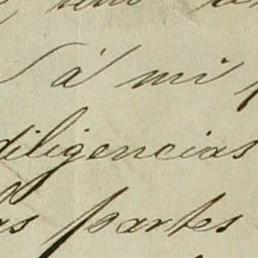 á mi
diligencias
as partes